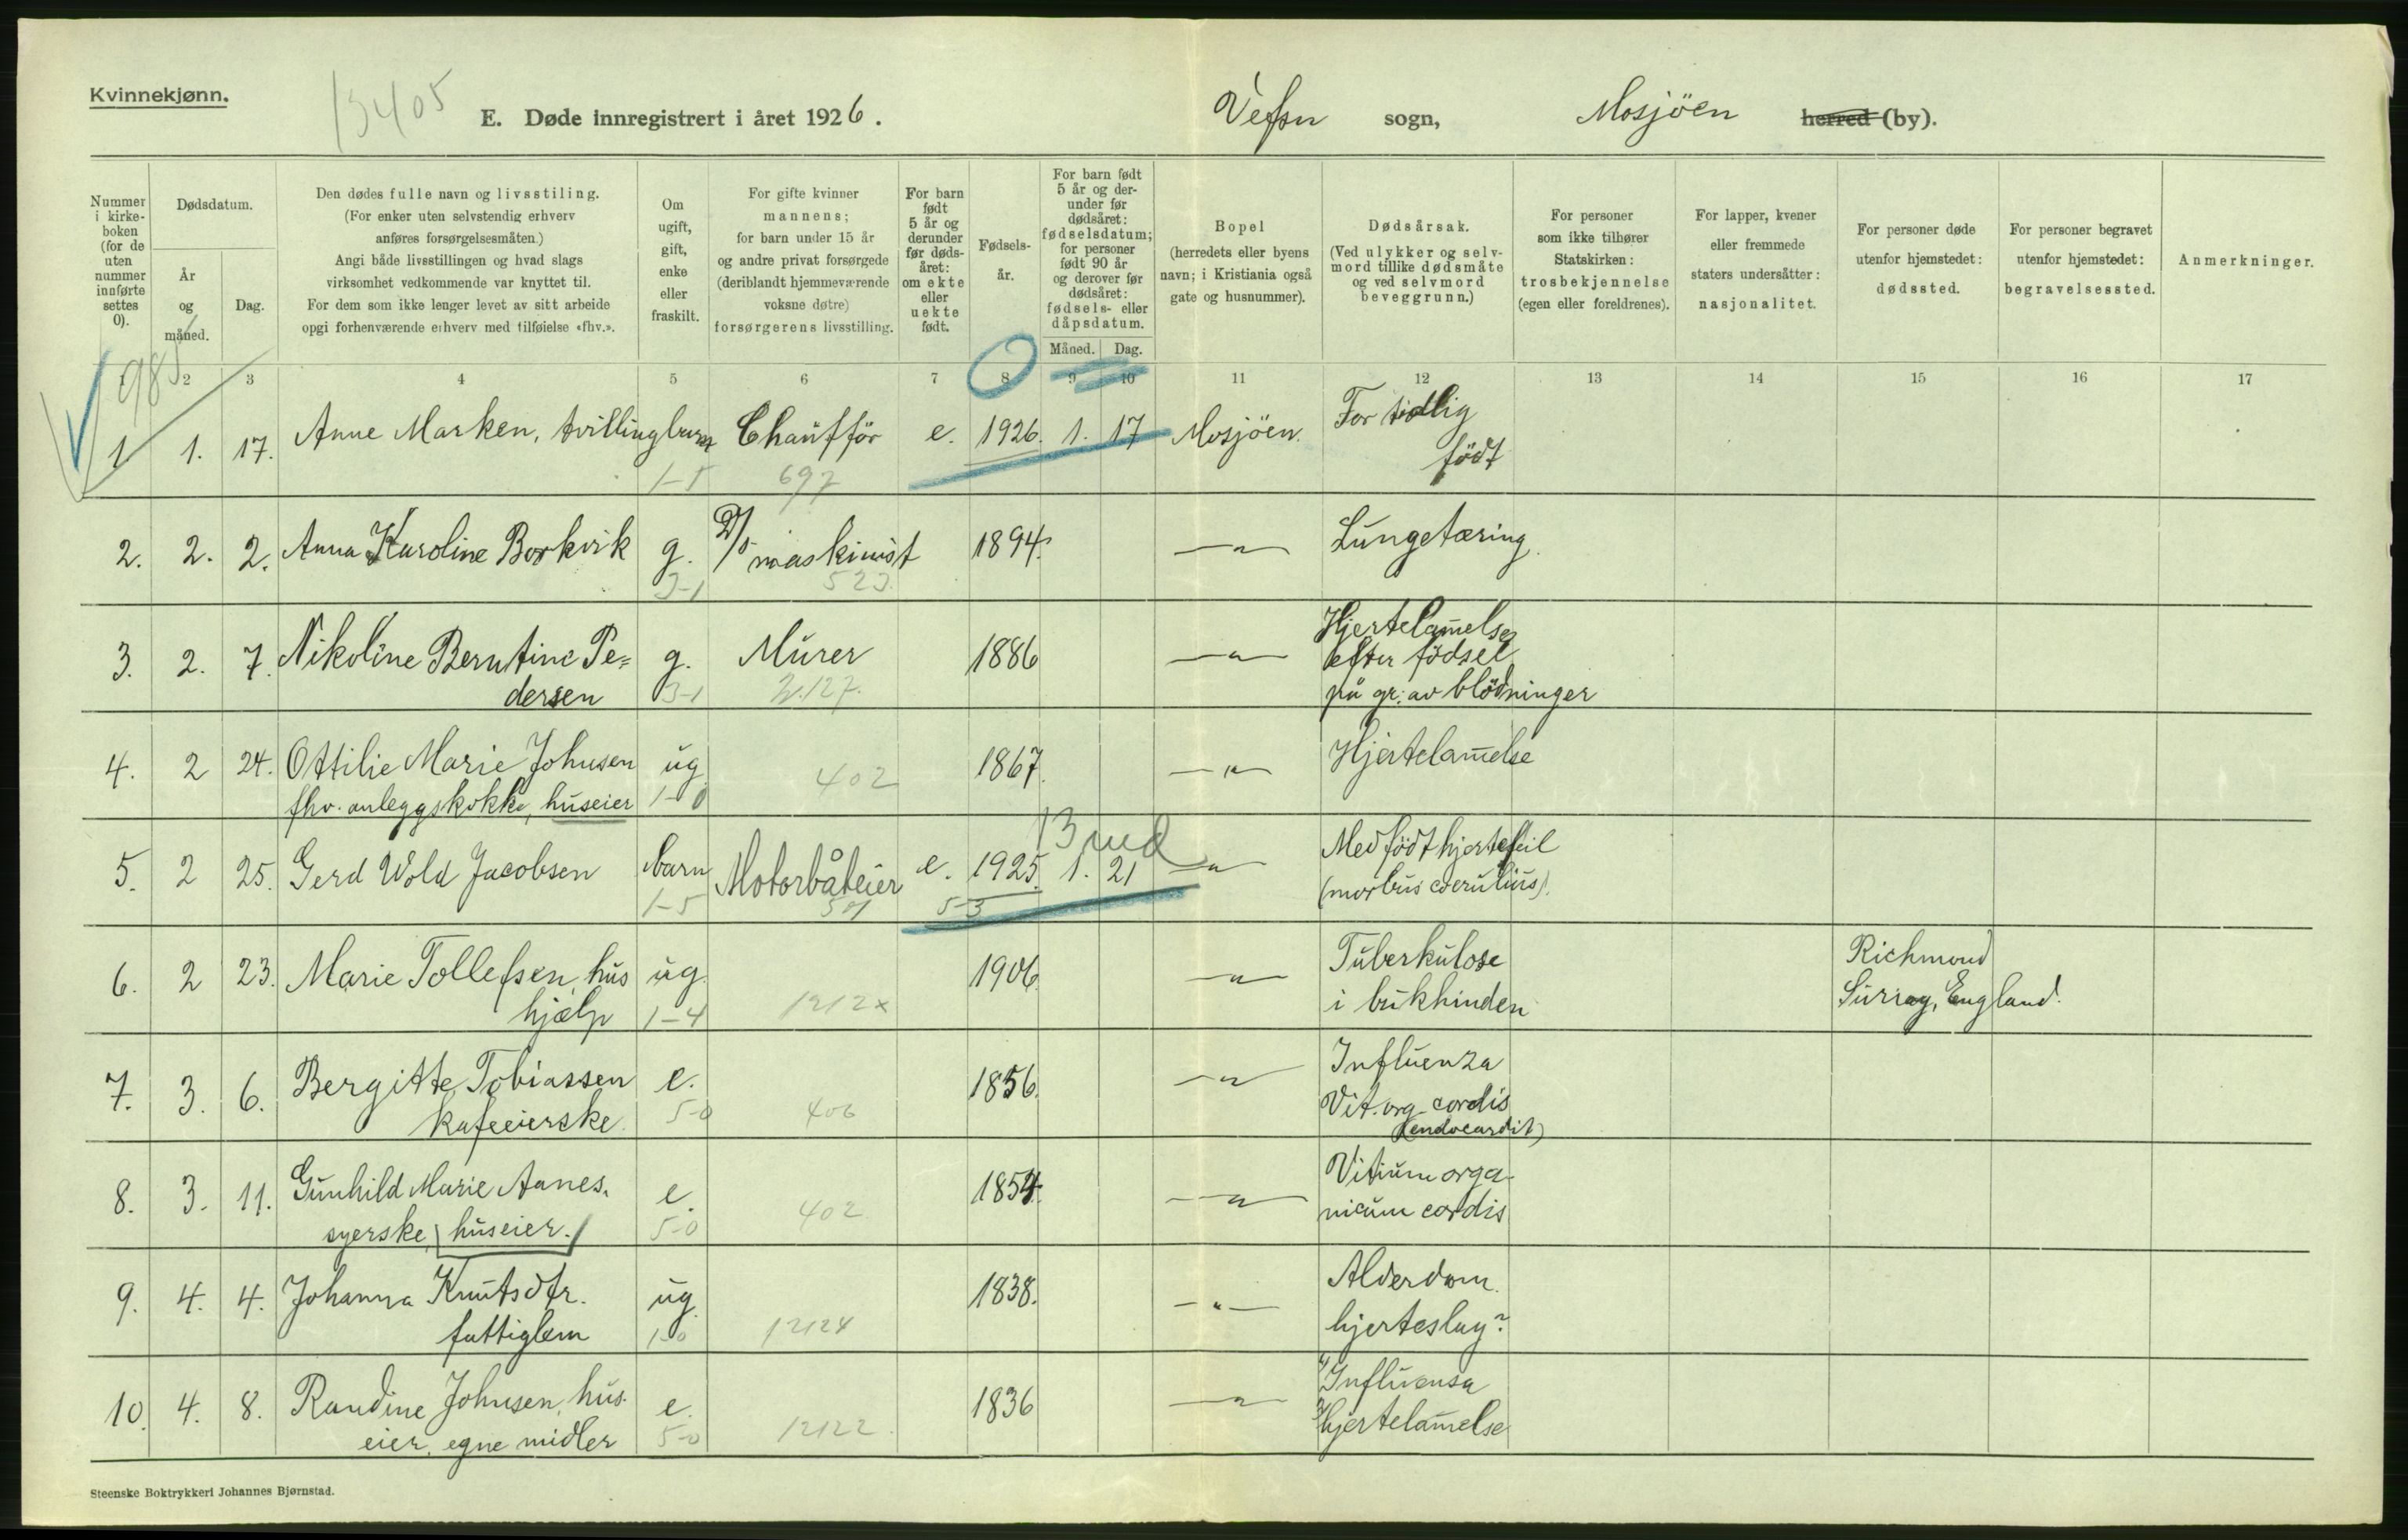 Kvinnekjønn.
13405
E. Døde innregistrert i året 1926.
Vefsn sogn, Mosjöen herred (by).
Nummer i kirke-boken (for de uten nummer innførte settes 0).
Dødsdatum.
År og måned.
Dag.
Den dødes fulle navn og livsstiling.
(For enker uten selvstendig erhverv
anføres forsørgelsesmåten.)
Angi både livsstillingen og hvad slags
virksomhet vedkommende var knyttet til.
For dem som ikke lenger levet av sitt arbeide
opgi forhenværende erhverv med tilføielse «fhv.».
Om ugift, gift, enke eller fraskilt.
For gifte kvinner
mannens;
for barn under 15 år
og andre privat forsørgede
(deriblandt hjemmeværende
voksne døtre)
forsørgerens livsstilling.
For barn født 5 år og derunder før døds-året: om ekte eller uekte født.
Fødsels-år.
For barn født 5 år og der-under før dødsåret: fødselsdatum; for personer født 90 år og derover før dødsåret: fødsels- eller dåpsdatum.
Måned. Dag.
Bopel
(herredets eller byens
navn; i Kristiania også
gate og husnummer).
Dødsårsak.
(Ved ulykker og selv-
mord tillike dødsmåte
og ved selvmord
beveggrunn.)
For personer
som ikke tilhører
Statskirken:
trosbekjennelse
(egen eller foreldrenes).
For lapper, kvener
eller fremmede
staters undersåtter:
nasjonalitet.
For personer døde
utenfor hjemstedet:
dødssted.
For personer begravet
utenfor hjemstedet:
begravelsessted.
Anmerkninger.
1 2 3 4 5 6 7 8 9 10 11 12 13 14 15 16 17
985
1 1. 17. Anne Marken, tvillingbarn Chaufför e. 1926. 1. 17 Mosjöen. For tidlig
født
1-5 697
2. 2. 2. Anna Karoline Borkvik g. D/S maskinist 1894. —"— Lungetæring.
3-1 523.
3. 2. 7. Nikoline Berntine Pe= g. Murer 1886 —"— Hjertelam̄else
efter födsel
dersen 3-1 2.127. på gr. av blödninger
4. 2 24. Ottilie Marie Johnsen ug 402 1867. —"— Hjertelam̄else
fhv. anleggskokke, huseier 1-0
Bud
5. 2 25. Gerd Wold Jacobsen barn Motorbåteier e. 1925. 1. 21 —"— Medfödt hjertefeil
1-5 501 5-3 (morbus coerulius).
6. 2 23. Marie Tollefsen, hus ug. 1906. —"— Tuberkulose Richmond
hjælp 1-4 1212x i bukhinden Surray, England.
7. 3. 6. Bergitte Tobiassen e. 1856. —"— Influenza
kafeeierske. 5-0 406 Vit. org. cordis
(endocardit)
8. 3. 11. Gunhild Marie Aanes. e. 1854. —"— Vitium orga-
syerske, huseier. 5-0 402 nicum cordis
9. 4. 4. Johanna Knutsdtr. ug. 1838. —"— Alderdom.
fattiglem 1-0 12124 hjerteslag?
10. 4. 8. Randine Johnsen, hus- e. 1836 —"— Influensa
eier, egne midler 5-0 12122. Hjertelam̄else
Steenske Boktrykkeri Johannes Bjørnstad.